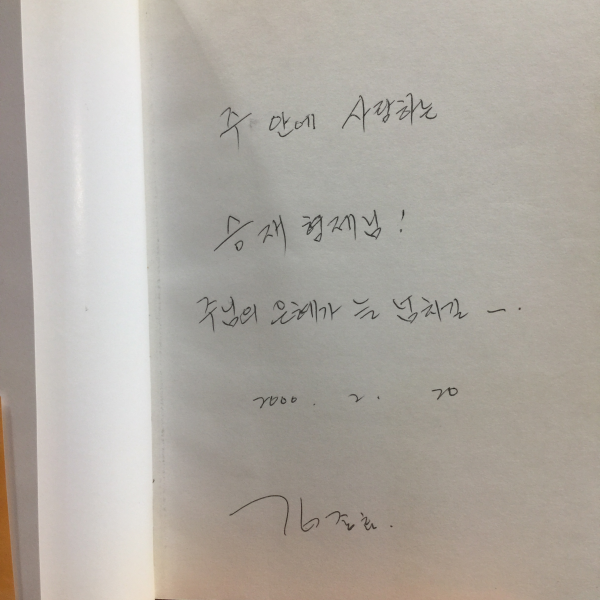 주 안에 사랑하는
승재 형제님!
주님의 은혜가 늘 넘치길 ㅡ.
2000. 2. 20